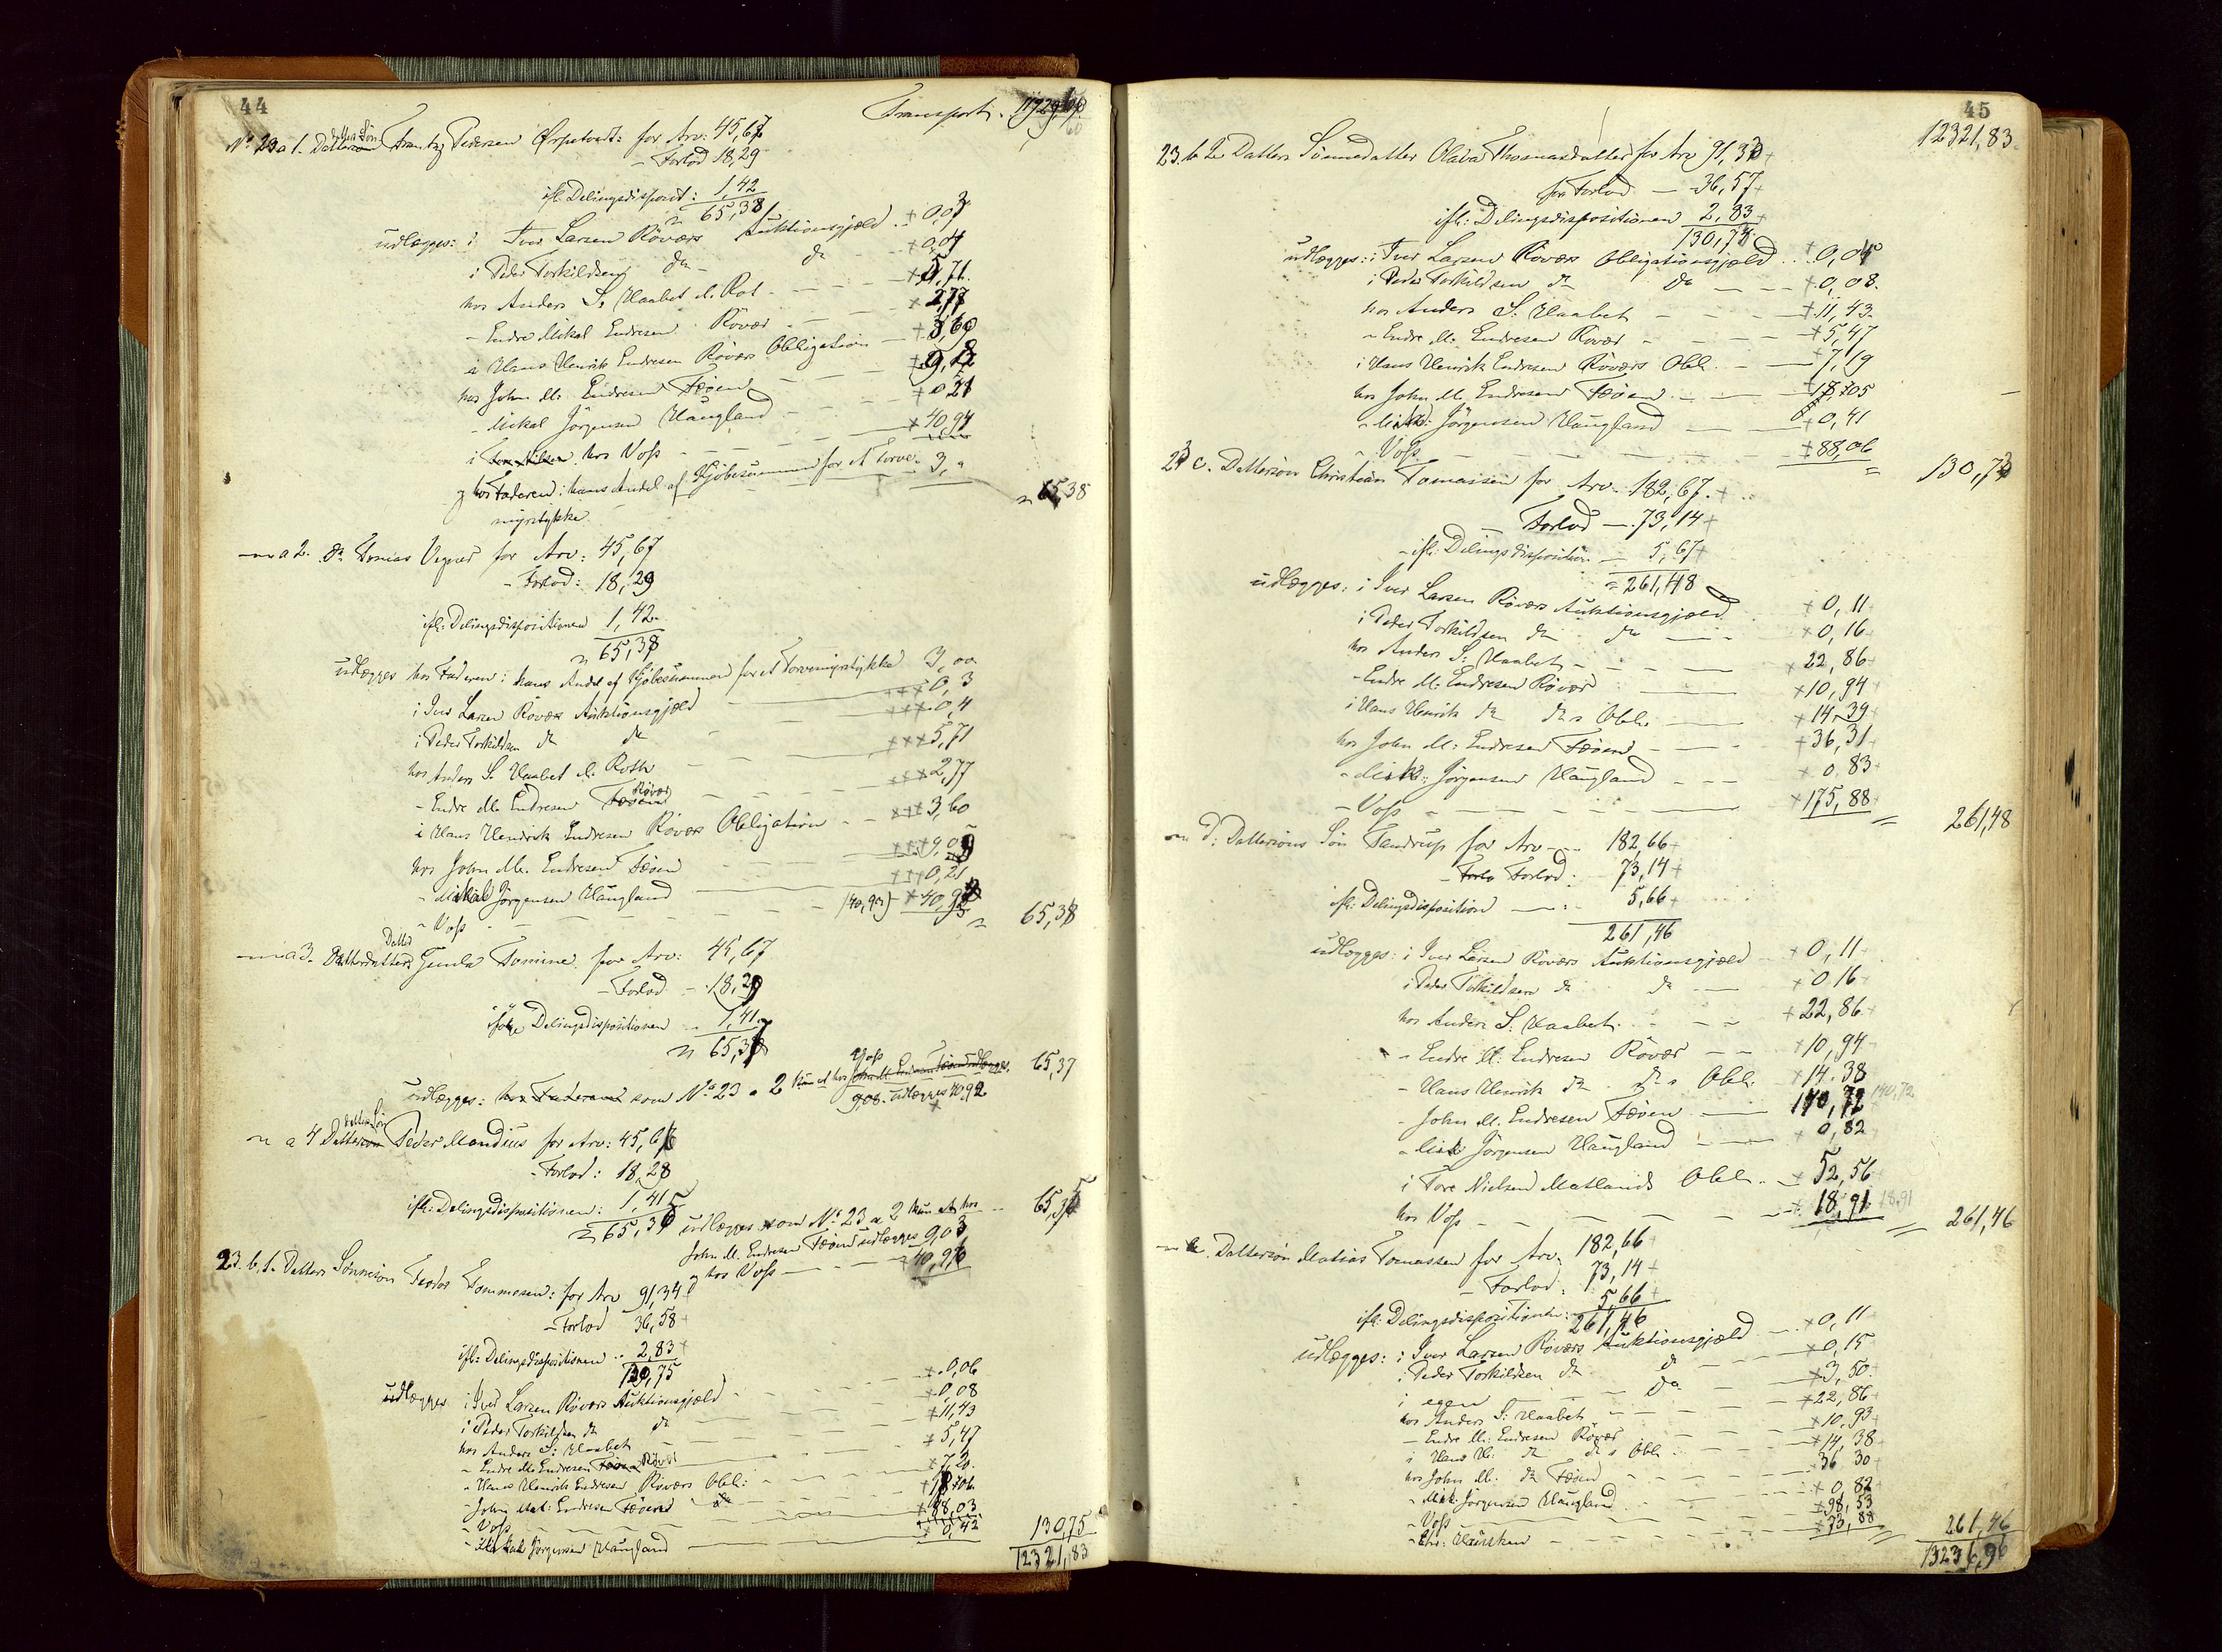 44
Transport. 11929,60
No 23 a 1. Datterdatters Søn Frantz Pedersen Ørpetvedt: for Arv: 45,67
- Forlod 18,29
ifl. Delingsdisposit: 1,42
= 65,38
udlægges: i Iver Larsen Röværs Auktionsgjæld + 0,03
i Peder Torkildsen do do + 0,04
hos Anders S. Haabet el. Rot + 5,71
- Endre Mikal Endresen Rövær + 2,77
i Hans Henrik Endresen Röværs Obligation + 3,60
hos John M. Endresen Fæøen
- Mikal Jörgensen Haugland + 0,21
i hos Voss + 40,94
og hos Faderen: hans Andel af Kjøbesummen for et Torve- 3,"
myrstykke = 65,38
- a 2. do Tomas Vegner for Arv: 45,67
- Forlod: 18,29
ifl: Delingsdispositionen 1,42
= 65,38
udlægges hos Faderen: hans Andel af Kjøbesummen for et Torvemyrstykke 3,00
i Iver Larsen Röværs Auktionsgjæld +++ 0,3
i Peder Torkildsen do do +++ 0,4
hos Anders S. Haabet el. Roth +++ 5,71
- Endre M. Endresen Rövær +++ 2,77
i Hans Hendrik Endresen Röværs Obligation +++ 3,60
hos John M. Endresen Fæøen +++ 9,09
- Mikal Jörgensen Haugland +++ 0,21
- Voss (40,93) + 40,93 = 65,38
- a 3. Datterdatters Datter Gunla Tomine for Arv: 45,67
- Forlod - 18,29
ifølge Delingsdispositionen 1,41
= 65,37
udlægges: som No 23 a 2 kun at hos Voss 65,37
udlægges 40,92
- a 4 Datterdatters Søn Peder Mandius for Arv: 45,66
- Forlod: 18,28
ifl: Delingsdispositionen: 1,41
= 65,35 udlægges som No 23 a 2 kun at hos 65,35
John M. Endresen Fæøen udlægges 9,03
og hos Voss 40,96
23. b. 1. Datters Sönnesön Teodor Tommesen: for Arv 91,34
- Forlod 36,58
ifl: Delingsdispositionen 2,83
130,75
udlægges i Iver Larsen Röværs Auktionsgjæld + 0,06
i Peder Torkildsen do do + 0,08
hos Anders S: Haabet + 11,43
- Endre M. Endresen Rövær + 5,47
- Hans Henrik Endresen Röværs Obl: + 7,20
- John Mat: Endresen Fæøen + 18,06
- Voss + 88,03
- Mikal Jörgensen Haugland + 0,42 130,75
12321,83
45
12321,83
23. b 2. Datters Sönnedatter Olava Thomasdatter for Arv 91,33
for Forlod - 36,57
ifl: Delingsdispositionen 2,83
130,73
udlægges: i Iver Larsen Röværs Obligationsgjæld + 0,05
i Peder Torkildsen do do + 0,08
hos Anders S: Haabet + 11,43
- Endre M. Endresen Rövær + 5,47
i Hans Henrik Endresen Röværs Obl. + 7,19
hos John M. Endresen Fæøen + 18,05
- Mik: Jörgensen Haugland + 0,41
- Voss + 88,06 = 130,73
23 c. Dattersön Christian Tomassen for Arv. 182,67
Forlod - 73,14
- ifl: Delingsdisposition - 5,67
= 261,48
udlægges: i Iver Larsen Röværs Auktionsgjæld + 0,11
i Peder Torkildsen do do + 0,16
hos Anders S: Haabet + 22,86
- Endre M: Endresen Rövær + 10,94
i Hans Henrik do do s Obl. + 14,39
hos John M. Endresen Fæøen + 36,31
- Mik: Jörgensen Haugland + 0,83
- Voss + 175,88 = 261,48
- d: Dattersöns Sön Tandrup for Arv 182,66
- Forlod: 73,14
ifl: Delingsdisposition 5,66
261,46
udlægges: i Iver Larsen Röværs Auktionsgjæld + 0,11
i Peder Torkildsen do do + 0,16
hos Anders S. Haabet + 22,86
- Endre M: Endresen Rövær + 10,94
- Hans Henrik do do s Obl. + 14,38
- John M. Endresen Fæøen 140,72 140,72
- Mik Jörgensen Haugland + 0,82
i Tore Nielsen Matlands Obl. + 52,56
hos Voss + 18,91 18,91 = 261,46
- e. Dattersön Matias Tomassen for Arv. 182,66
- Forlod: 73,14
ifl: Delingsdispositionen: 5,66
261,46
udlægges: i Iver Larsen Röværs Auktionsgjæld + 0,11
i Peder Torkildsen do do + 0,15
i egen do + 3,50
hos Anders S: Haabet + 22,86
- Endre M: Endresen Rövær + 10,93
i Hans H: do do s Obl + 14,38
hos John M. do Fæøen 36 30
- Mik: Jörgensen Haugland + 0,82
- Voss + 98,53
- Chr: Hausken + 73,88 = 261,46
13236,96